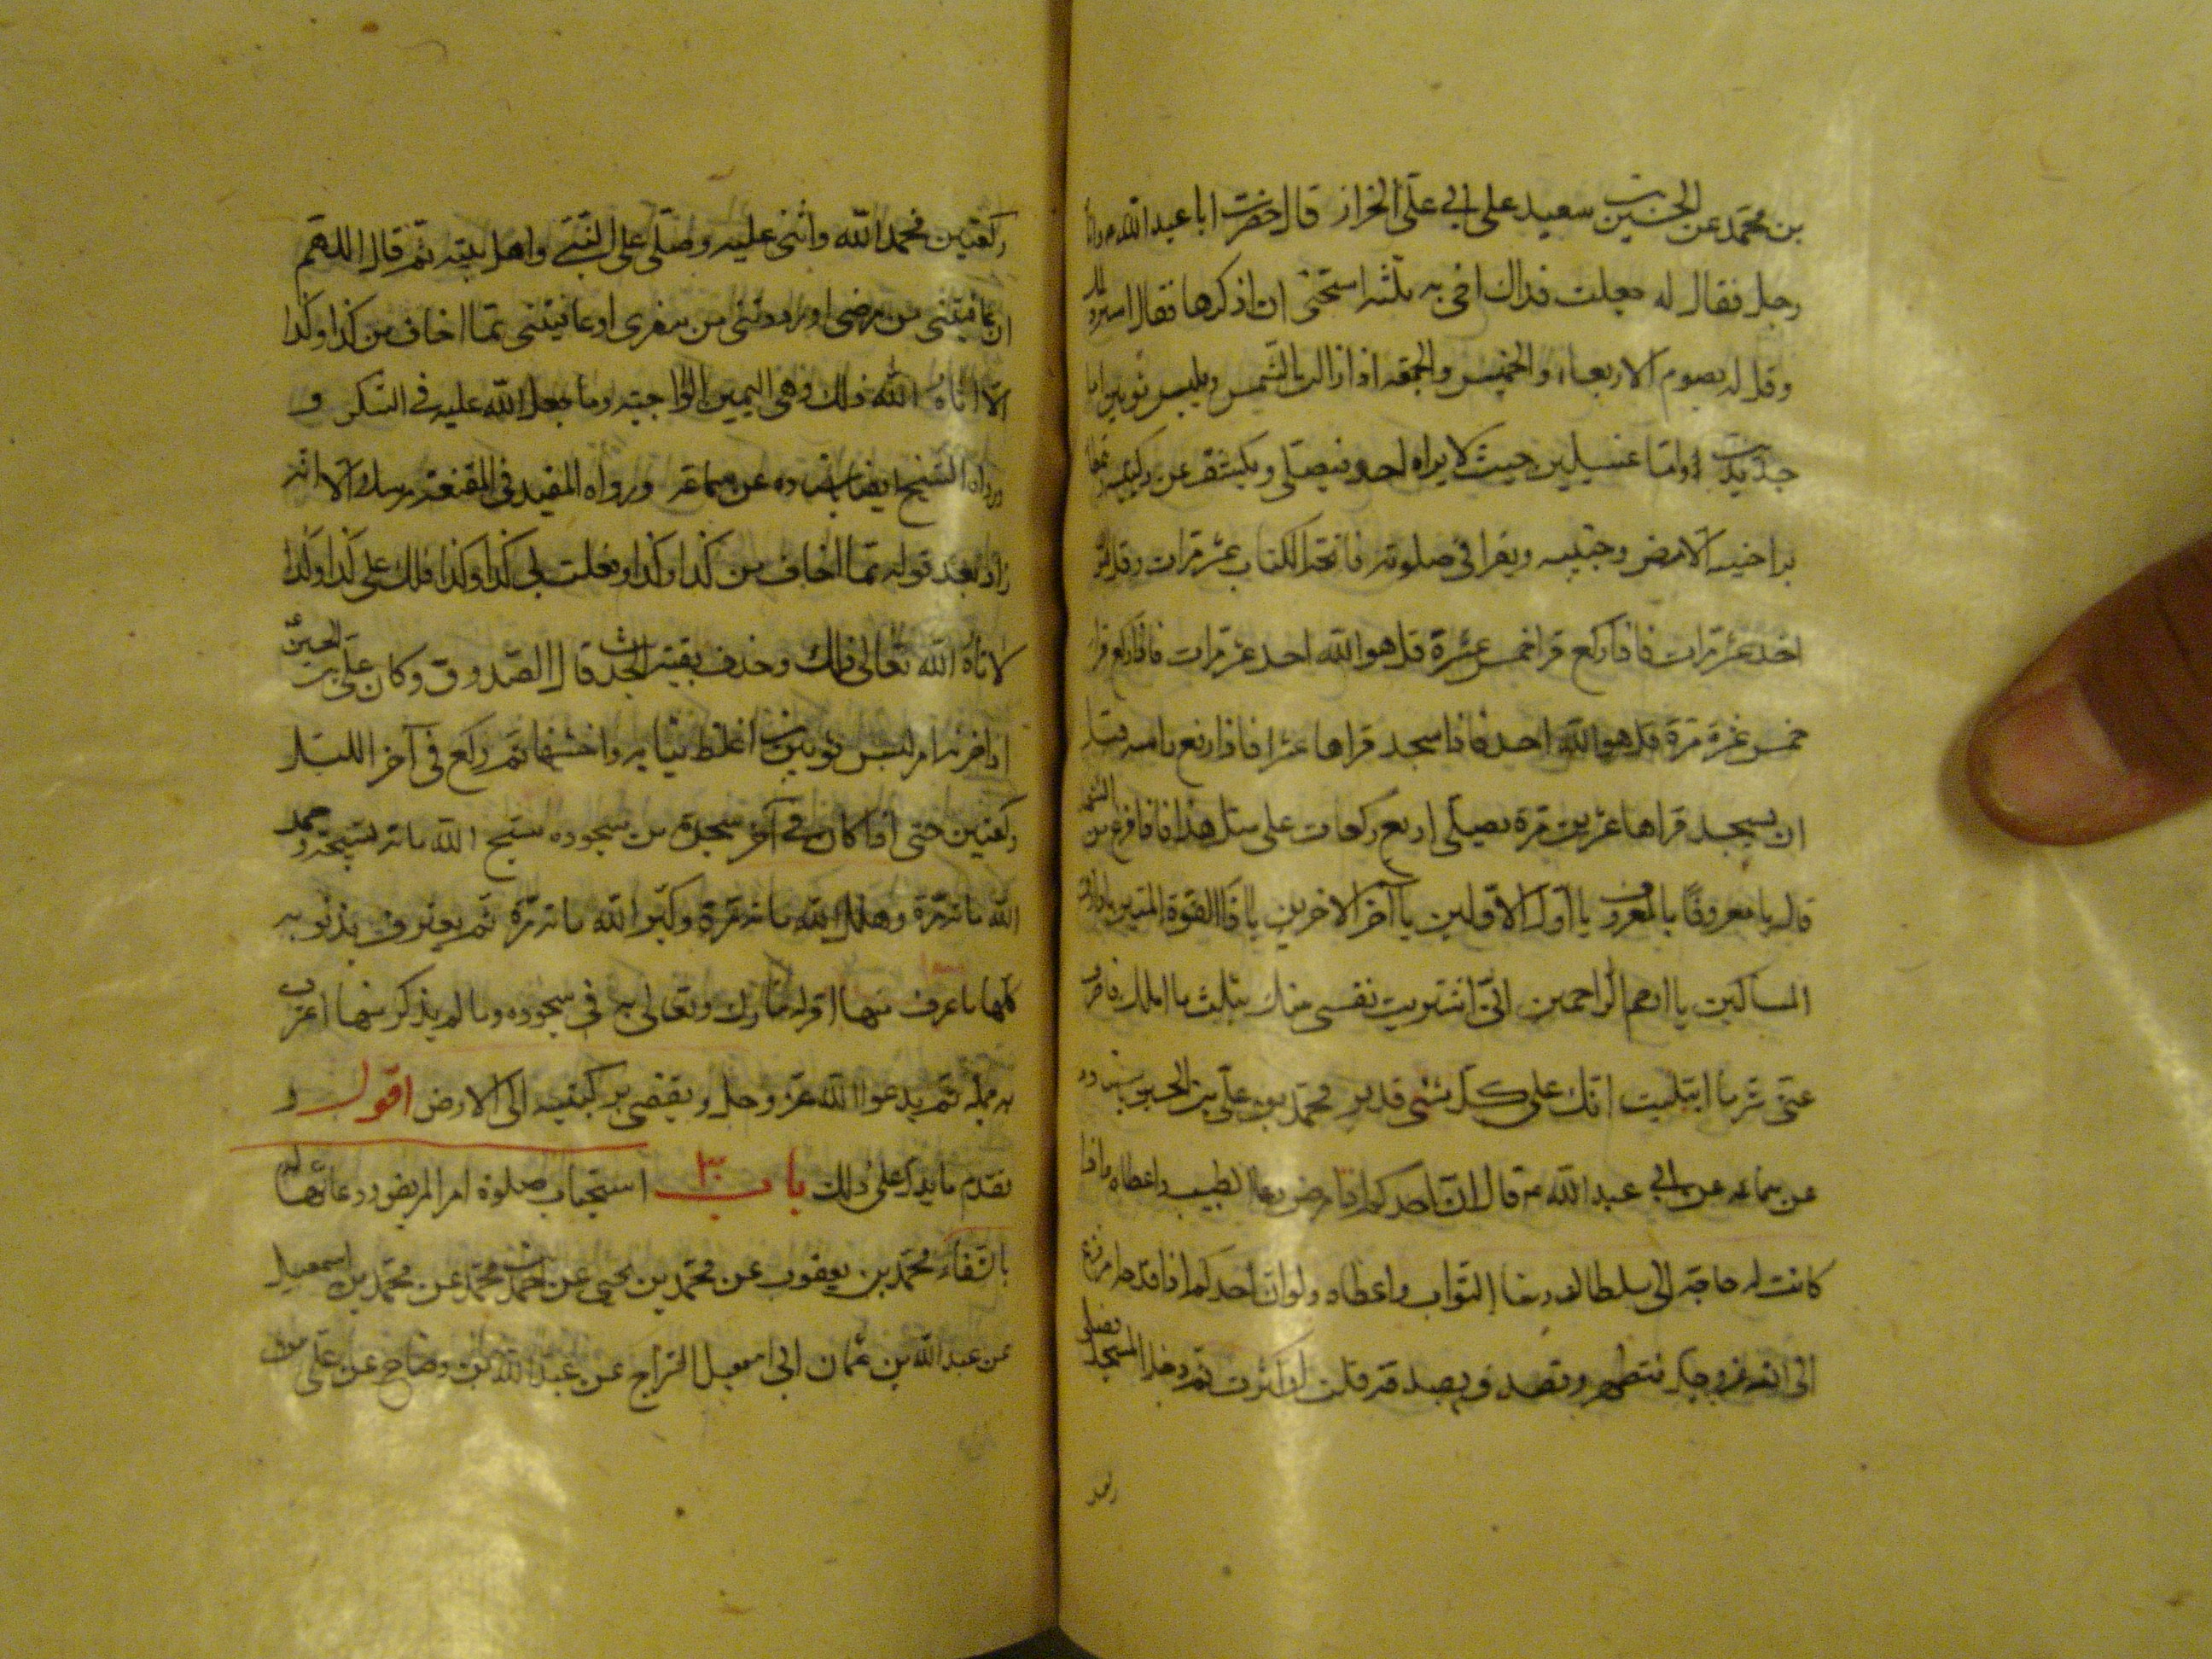 بن محمد عن الحسين بن سعيد على ابى على الخراز قال حضرت ابا عبد الله م واتا
رجل فقال له جعلت فداك اخى به بلية استحيى ان اذكرها فقال استر
وقل له يصوم الاربعاء والخميس والجمعة اذا زالت الشمس ويلبس ثوبين اما
جديدين واما غسيلين حيث لا يراه احد فيصلى ويكشف عن ركبتيه
براحتيه الارض وجنبيه ويقرا فى صلوته فاتحة الكتاب عشر مرات وقل هو
احد عشر مرات فاذا ركع قرا خمس عشرة قل هو الله احد عشر مرات فاذا ركع قرا
خمس عشرة مرة قل هو الله احد فاذا سجد قراها عشرا فاذا رفع راسه قبل
ان يسجد قراها عشرين مرة يصلى اربع ركعات على مثل هذا فاذا فرغ من التشهد
قال يا معروفا بالمعروف يا اول الاولين يا آخر الاخرين يا ذا القوة المتين يا رازق
المساكين يا ارحم الراحمين انى اشتريت نفسى منك بثلث ما املك فاصرف
عنى شر ما ابتليت انك على كل شىء قدير محمد بن على بن الحسين باسناده
عن سماعة عن ابى عبد الله ع قال ان احدكم اذا مرض دعا الطبيب واعطاه واذا
كانت له حاجة الى سلطان رشا البواب واعطاه ولو ان احدكم اذا فدحه امر فزع
الى الله عز وجل فتطهر وتصدق بصدقة قلت او كثرت ثم دخل المسجد فصلى
ركعتين فحمد الله واثنى عليه وصلى على النبى واهل بيته ثم قال اللهم
ان عافيتنى من مرضى او رددتنى من سفرى او عافيتنى مما اخاف من كذا وكذا
الا اتاه الله ذلك وهى اليمين الواجبة وما جعل الله عليه فى الشكر و
رواه الشيخ ايضا باسناده عن سماعة ورواه المفيد فى المقنعة مرسلا الا انه
زاد بعد قوله مما اخاف من كذا وكذا وفعلت بى كذا وكذا فلك على كذا وكذا
لاتاه الله تعالى ذلك وحذف بقية الحديث قال الصدوق وكان على بن الحسين
اذا حزنه امر لبس ثوبين من اغلظ ثيابه واخشنها ثم ركع فى آخر الليل
ركعتين حتى اذا كان فى آخر سجدة من سجوده سبح الله مائة تسبيحة وحمد
الله مائة مرة وهلل الله مائة مرة وكبر الله مائة مرة ثم يعترف بذنوبه
كلها ما عرف منها اقر له تبارك وتعالى به فى سجوده وما لم يذكر منها اعترف
به جملة ثم يدعو الله عز وجل ويفضى بركبتيه الى الارض اقول و
تقدم ما يدل على ذلك باب ٣٠ استحباب صلوة ام المريض ودعائها له
بالشفاء محمد بن يعقوب عن محمد بن يحيى عن احمد بن محمد عن محمد بن اسمعيل
عن عبد الله بن عثمان ابى اسمعيل السراج عن عبد الله بن وضاح عن على